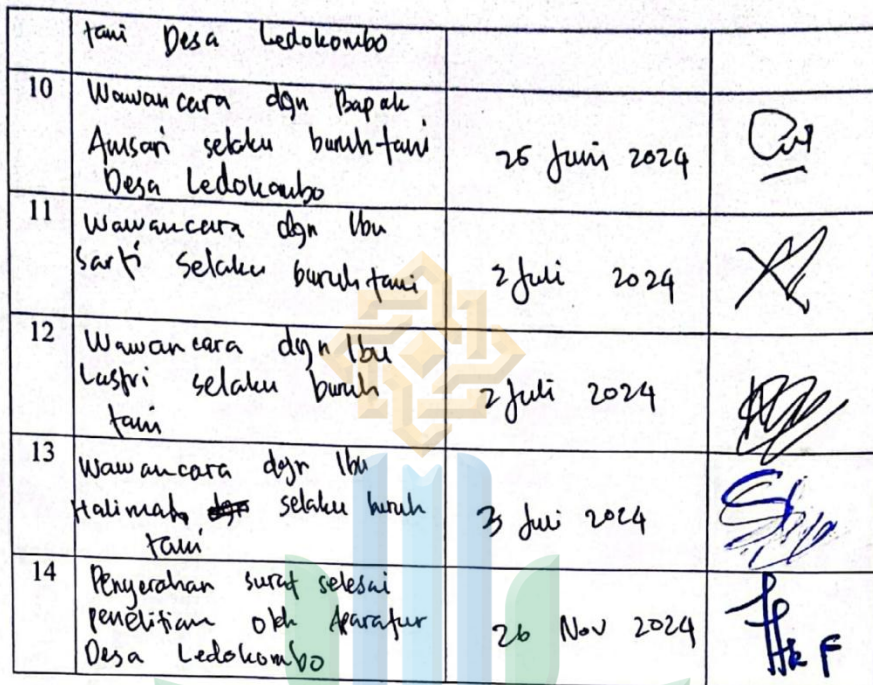 tani Desa Ledokombo
10 Wawancara dgn Bapak
Ansari selaku buruh tani 25 Juni 2024
Desa Ledokombo
11 Wawancara dgn Ibu
Sarti selaku buruh tani 2 Juli 2024
12 Wawancara dgn Ibu
Lastri selaku buruh
tani 2 Juli 2024
13 Wawancara dgn Ibu
Halimah selaku buruh
tani 3 Juli 2024
14 Penyerahan surat selesai
penelitian oleh Aparatur 26 Nov 2024
Desa Ledokombo